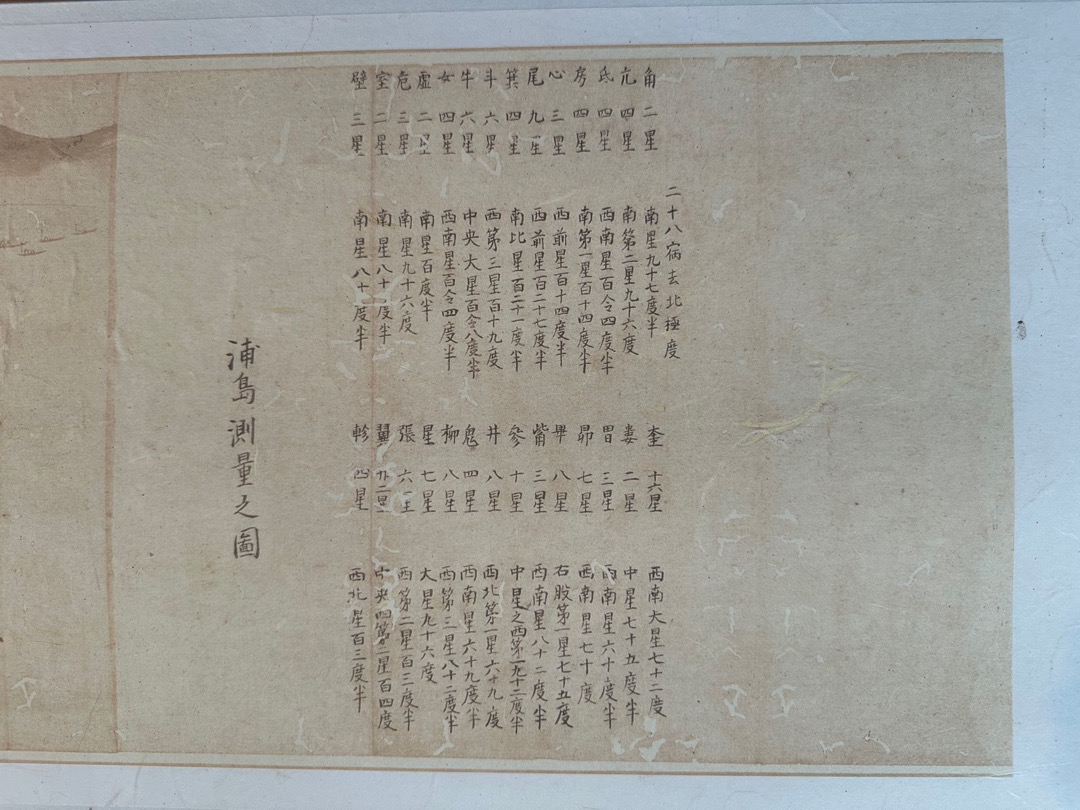 二十八宿去北極度
角 二星 南星九十七度半
亢 四星 南第二星九十六度
氐 四星 西南星百令四度半
房 四星 南第一星百十四度半
心 三星 西前星百十四度半
尾 九星 西前星百二十七度半
箕 四星 南比星百二十一度半
斗 六星 西第三星百十九度
牛 六星 中央大星百令八度半
女 四星 西南星百令四度半
虛 二星 南星百度半
危 三星 南星九十六度
室 二星 南星八十度半
壁 三星 南星八十度半
奎 十六星 西南大星七十二度
婁 二星 中星七十五度半
胃 三星 西南星六十度半
昴 七星 西南星七十度
畢 八星 右股第一星七十五度
觜 三星 西南星八十二度半
參 十星 中星之西第一九十二度半
井 八星 西北第一星六十九度
鬼 四星 西南星六十九度半
柳 八星 西第三星八十二度半
星 七星 大星九十六度
張 六星 西第二星百三度半
翼 廿二星 中央西第二星百四度
軫 四星 西北星百三度半
浦島測量之圖